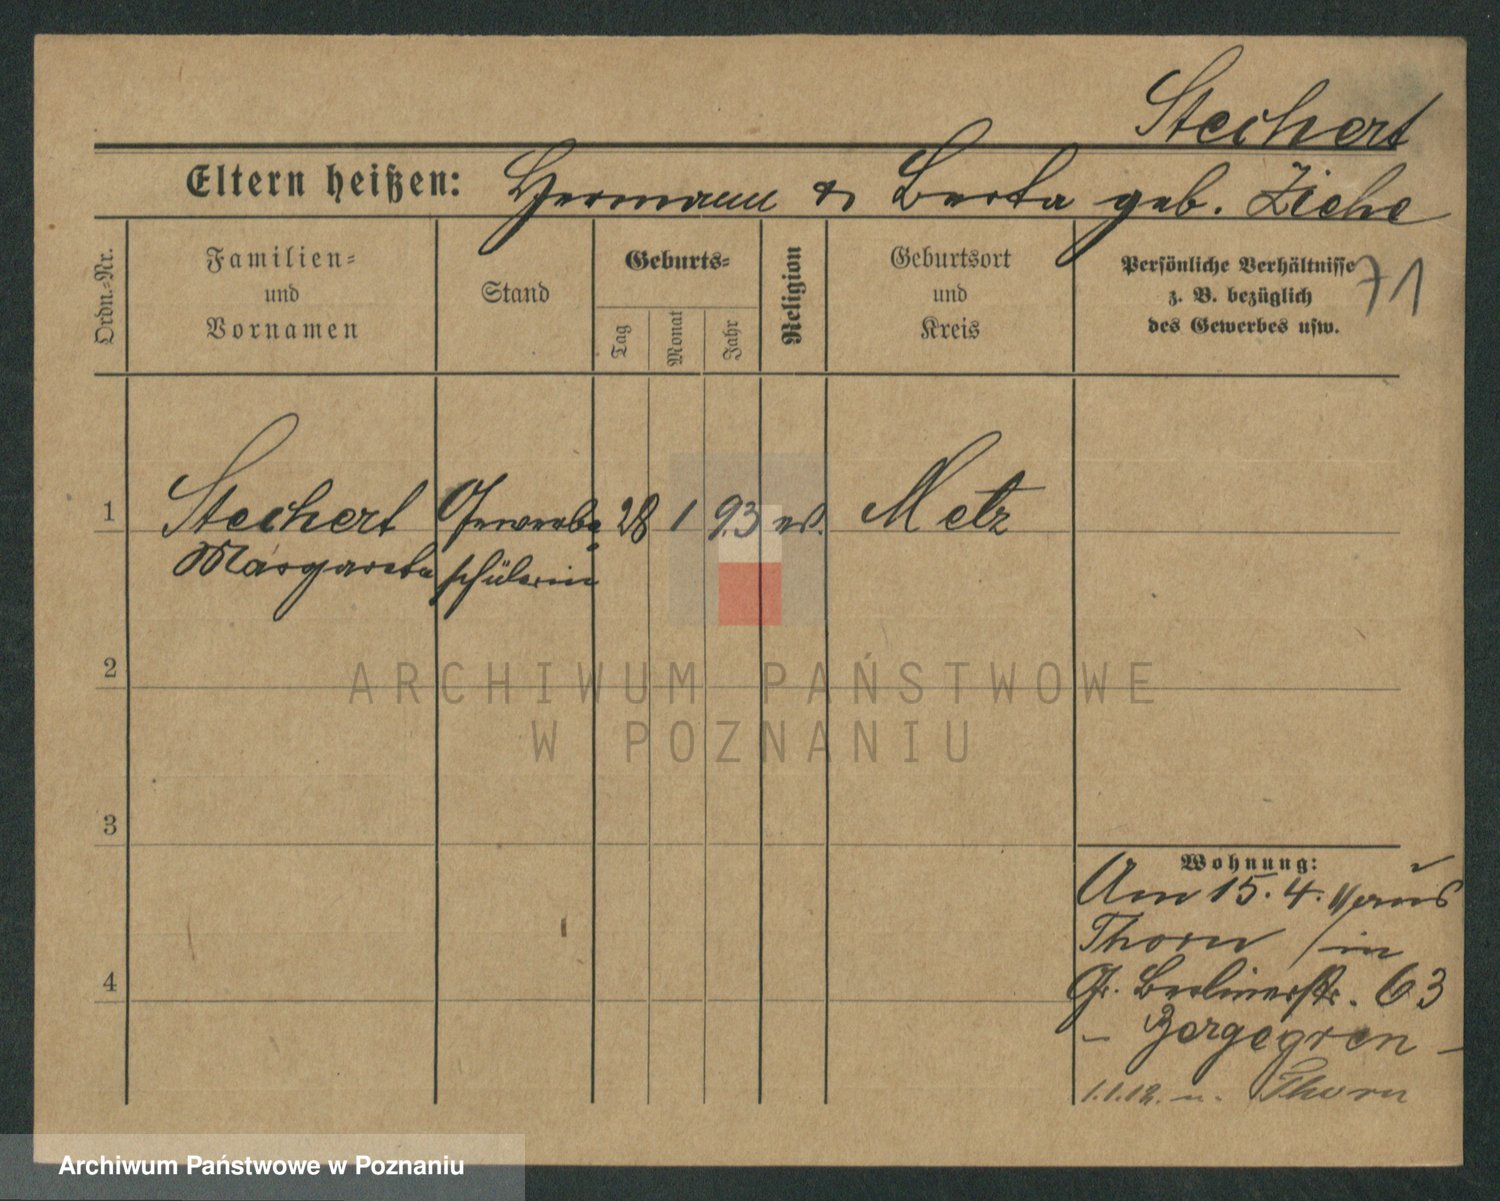 Stechert
Eltern heißen: Hermann & Berta geb. Ziehe
Ordn.-Nr.
Familien-
und
Vornamen
Stand
Geburts-
Tag
Monat
Jahr
Religion
Geburtsort
und
Kreis
Persönliche Verhältnisse
z. B. bezüglich
des Gewerbes usw.
71
1 Stechert Gewerbe- 28 1 93 ev. Metz
Margarete schülerin
2
3
4
Wohnung:
Am 15. 4. 11 aus
Thorn / in
Gr. Berlinerstr. 63
- Zergegren -
1.1.12. n. Thorn
ARCHIWUM PAŃSTWOWE
W POZNANIU
Archiwum Państwowe w Poznaniu